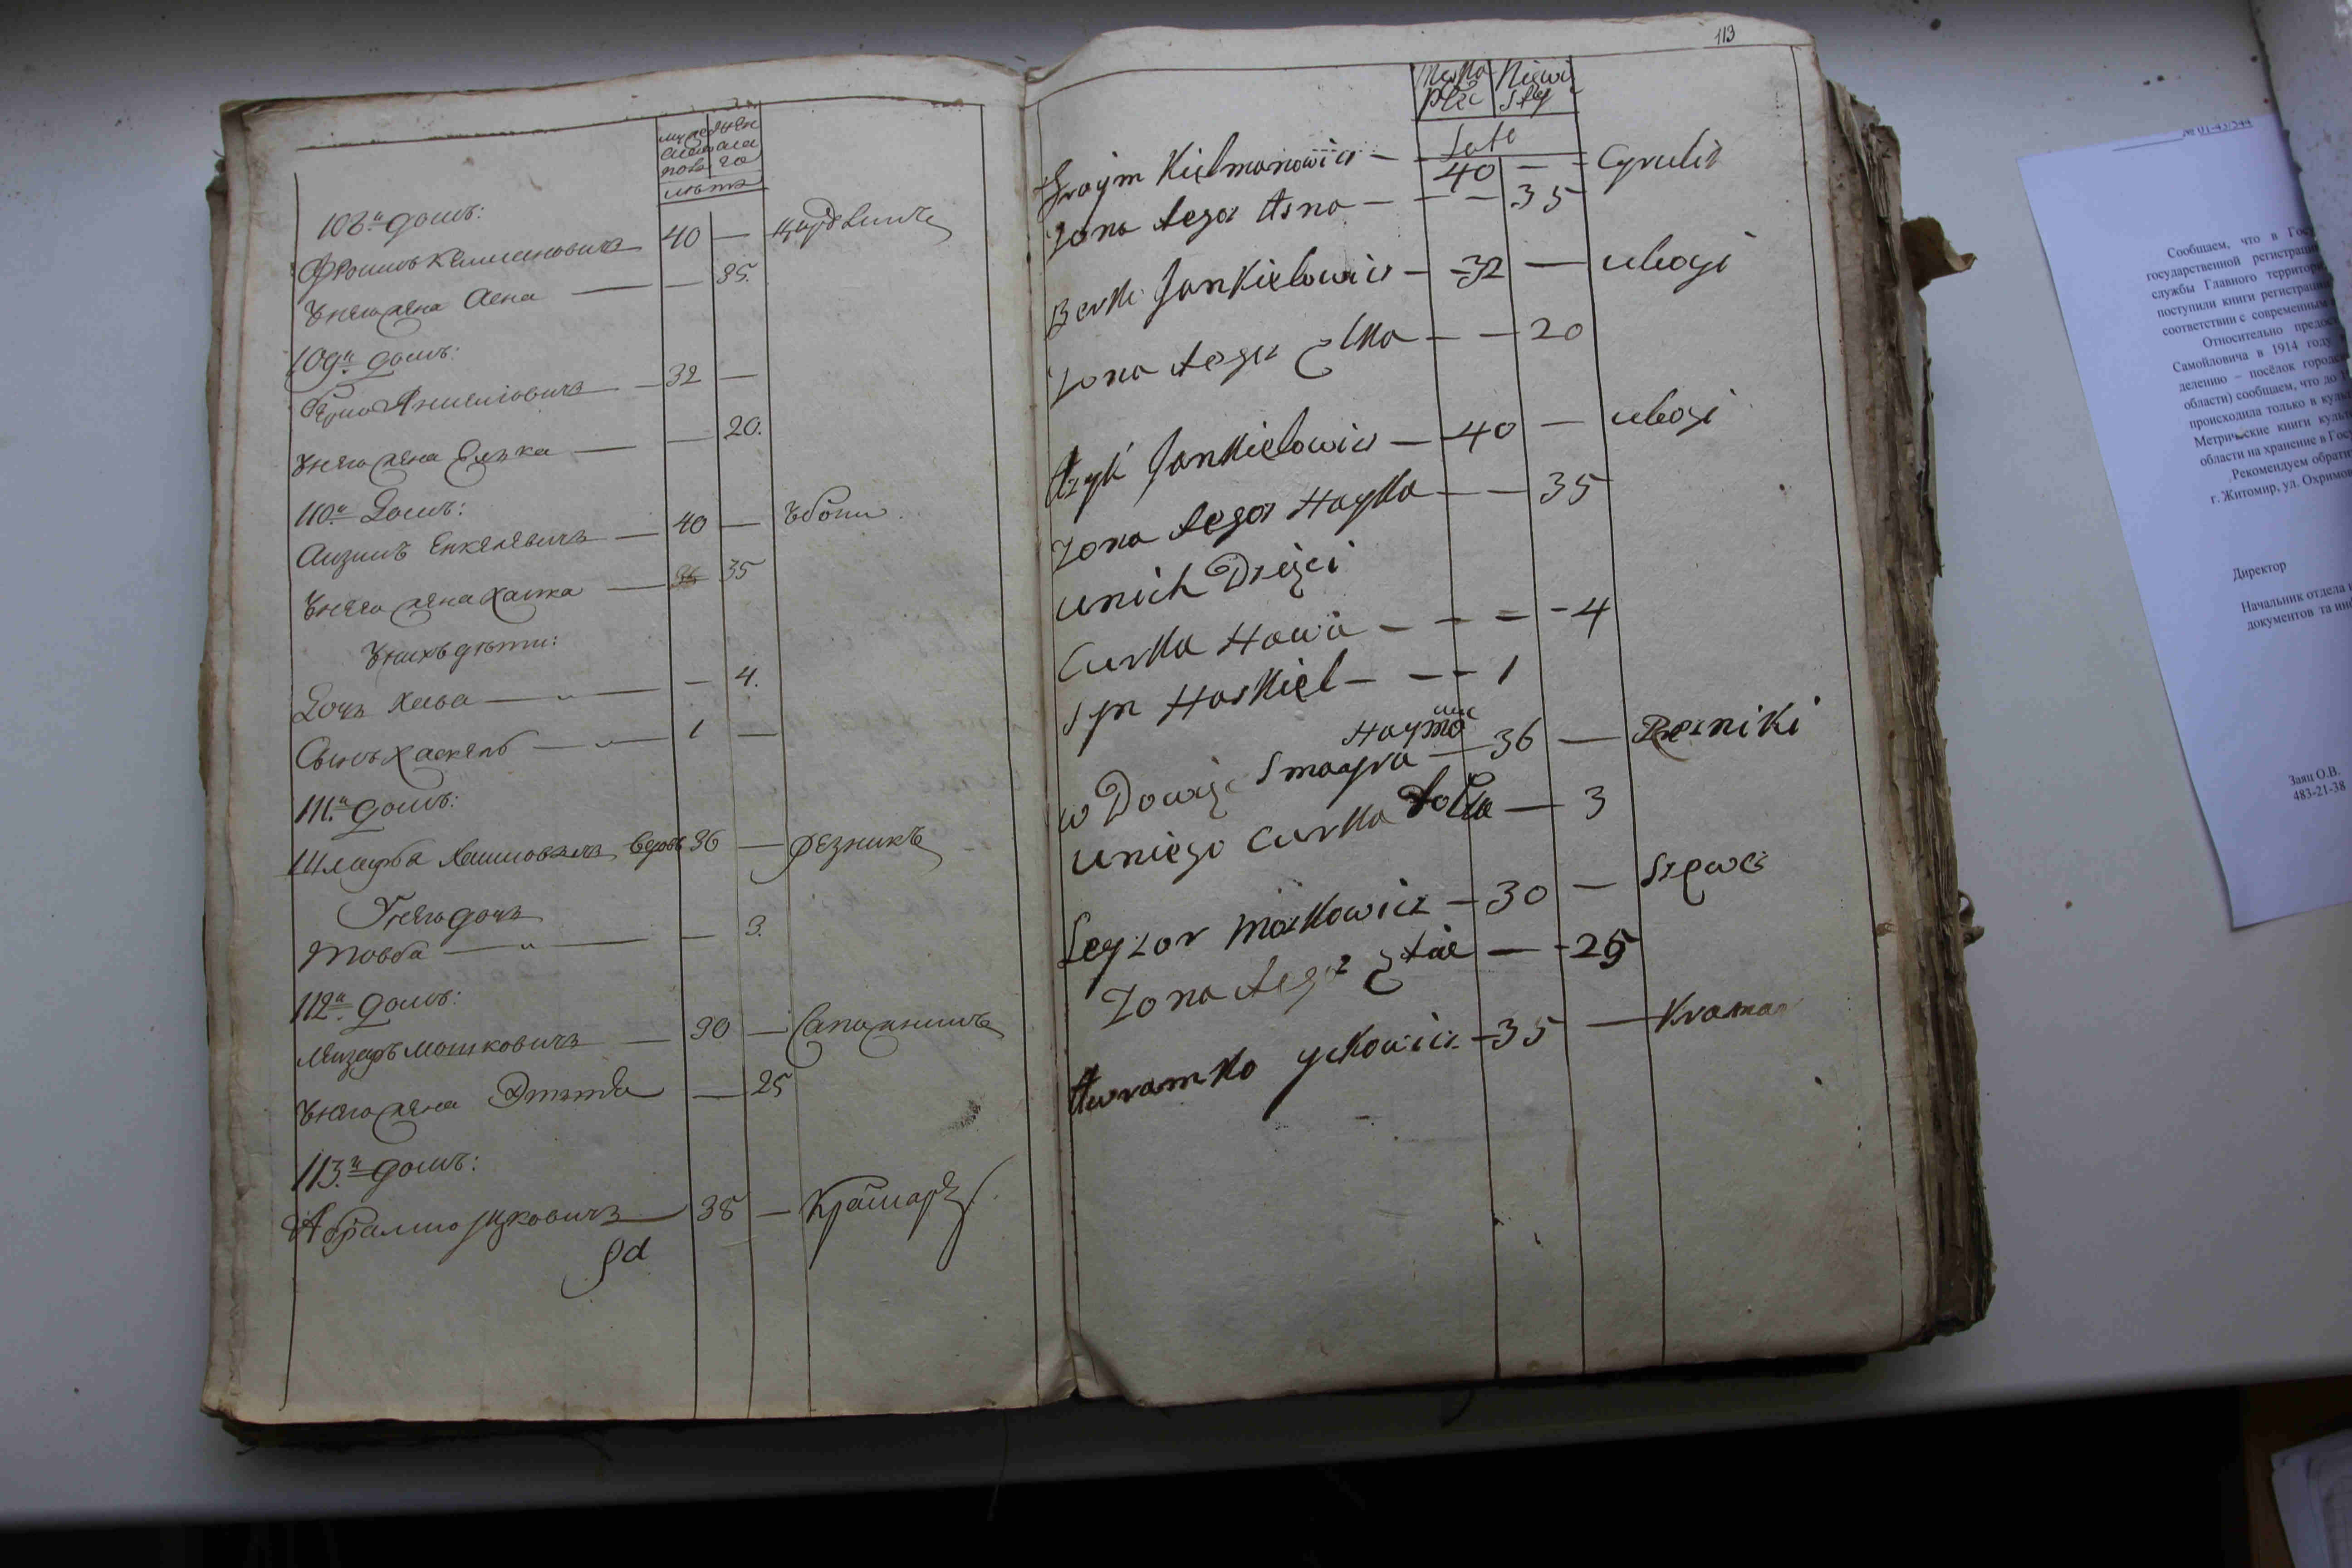 мужеска женска
пола го
лѣта
108й домъ:
Фроимъ Келмановичъ — 40 —
У него жена Асна — — 35.
109й домъ:
Берко Янкелiовичъ — 32 —
У него жена Елька — — 20.
110й Домъ:
Аизикъ Енкелевичъ — 40 — Убоги
У него жена Хайка — 35
У нихъ дѣти:
Дочь Хава — " — — 4.
Сынъ Хаскель — " — 1 —
111й домъ:
Шмаира Хаимовичъ 36 — рѣзникъ
У него дочь
Товба — " — — 3.
112й домъ:
Лейзоръ Мошковичъ — 30 — Сапожникъ
У него жена — 25
113й домъ:
Абрамко Ицковичъ — 38 — Крамаръ
113
Męska Niewi
Płeć
Lata
Froym Kielmanowicz — 40 — Cyrulik
Żona tego Asna — — — 35
Berko Jankielowicz — 32 — ubogi
Żona tego Elka — — 20
Azyk Jankielowicz — 40 — ubogi
Żona tego Hayka — — 35
u nich Dzieci
Curka Hawa — — — 4
Syn Haskiel — — — 1
Haymo
wDowiec Smayra — 36 — Rezniki
u niego Curka — 3
Leyzor Moszkowicz — 30 — Szewc
Żona tego — 25
Awramko Ickowicz — 35 — Kramar
№ 01-45/544
Сообщаем, что в Госу
государственной регистраци
службы Главного территори
поступили книги регистраци
соответствии с современным
Относительно предос
Самойловича в 1914 году
делению – посёлок городс
области) сообщаем, что до 1
происходила только в куль
Метрические книги куль
области на хранение в Гос
Рекомендуем обрати
г. Житомир, ул. Охримов
Директор
Начальник отдела
документов та ин
Заяц О.В.
483-21-38